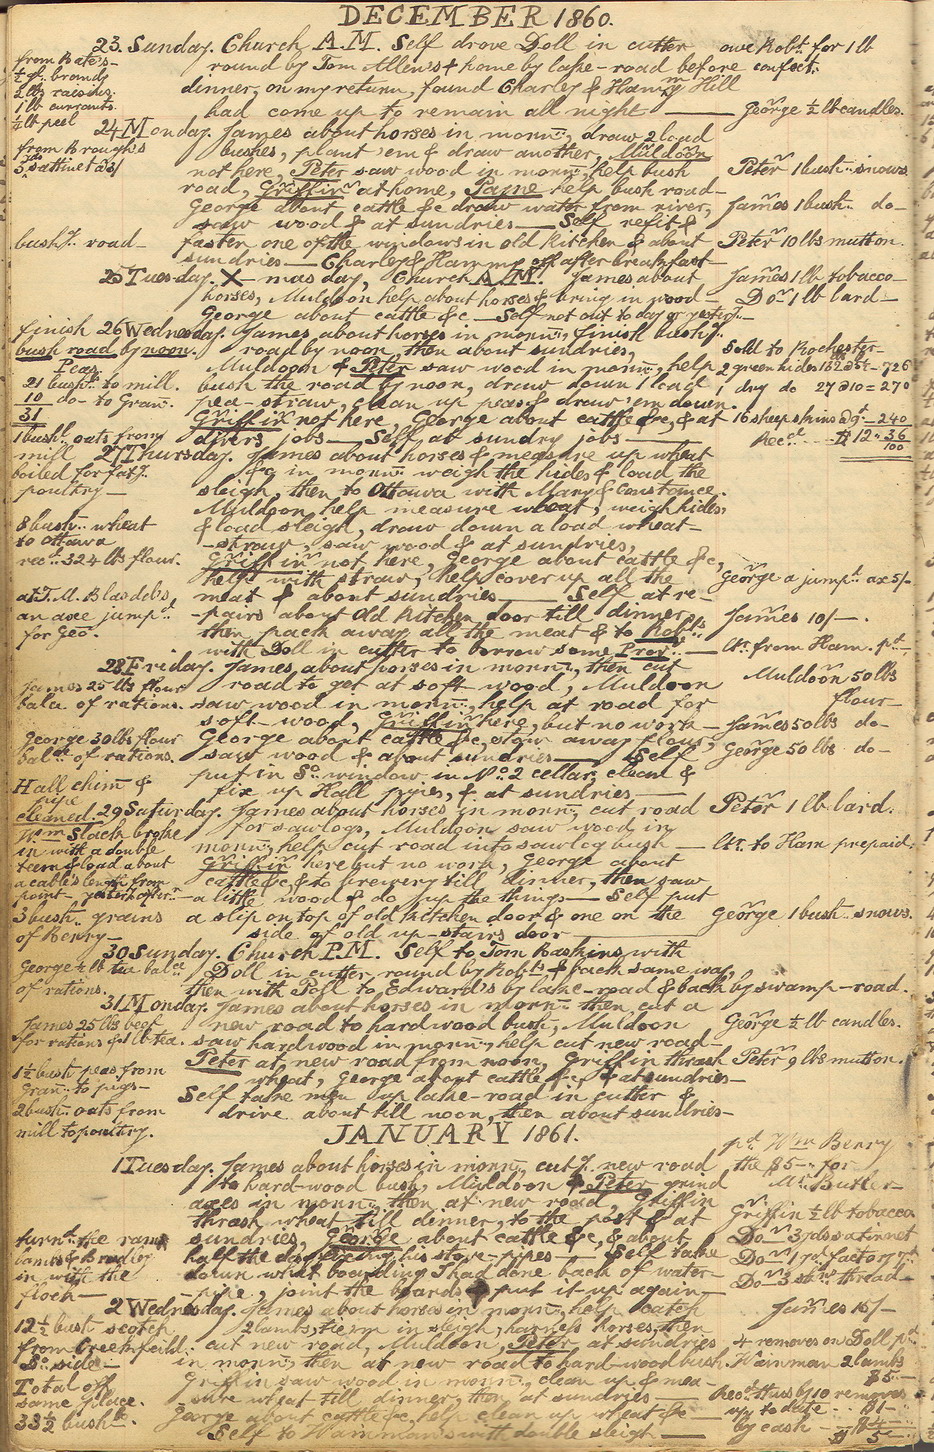 DECEMBER 1860.
23. Sunday. Church A.M. Self drove Doll in cutter owe Robt. for 1 lb
from Kate's- round by Tom Allen's & home by lake-road before confect.
½ gl. brandy dinner, on my return, found Charley & Hamy Hill
2 lbs raisins.
1 lb currants. had come up to remain all night — George ½ lb candles.
¼ lb peel 24 Monday. James about horses in morng., draw 2 load
from Brough's bushes, plant 'em & draw another, Muldoon
3 yds sattinet @5/ not here, Peter saw wood in morng., help bush Peter 1 bush. snows.
road, Griffin at home, Payne help bush road-
George about cattle &c draw water from river, James 1 bush. do-
saw wood & at sundries — Self refit &
bushg. road- fasten one of the windows in old Kitchen & about Peter 10 lbs mutton.
sundries — Charley & Hammy off after breakfast-
25 Tuesday. X-mas day, Church A.M. James about James 1 lb tobacco-
horses, Muldoon help about horses & bring in wood- Do. 1 lb lard-
George about cattle &c — Self not out to day or yestdy.-
finish 26 Wednesday. James about horses in morng., finish bushg.
bush road by noon. road by noon then about sundries, Sold to Rochester-
Peas Muldoon & Peter saw wood in morng., help 2 green hides 132 @5½ - 726
21 bush. to mill. bush the road by noon, draw down 1 load 1 dry do 27 @10 = 270
10 do- to Gran. pea-straw, clean up peas & draw 'em down.
31 Griffin not here, George about cattle &c, & at 16 sheep skins @9d. - 240
1 bush. oats from divers jobs — Self at sundry jobs — Rect. - - $ 12 " 36/100
mill 27 Thursday. James about horses & measure up wheat
boiled for fatg. &c in morng. weigh the hides & load the
poultry- sleigh then to Ottawa with Mary & Constance.
Muldoon help measure wheat, weigh hides
8 bush. wheat & load sleigh, draw down a load wheat-
to Ottawa -straw, saw wood & at sundries,
recd. 324 lbs flour. Griffin not here, George about cattle &c,
help with straw, help cover up all the George a jumpd. axe 5/-
at T. M. Blasdel's, meat & about sundries — Self at re-
an axe jumpd. -pairs about Old Kitchen door till dinner, James 10/-.
for Geo. then pack away all the meat & to Robt's
with Doll in cutter to borrow some Prov. — Lr. from Ham. pd-
28 Friday. James about horses in morng., then cut
James 25 lbs flour road to get at soft wood, Muldoon Muldoon 50 lbs
balce of rations. saw wood in morng., help at road for flour-
soft-wood, Griffin here, but no work- James 50 lbs do-
George 30 lbs flour George about cattle &c, stow away flour,
balce of rations. saw wood & about sundries — Self George 50 lbs do-
put in So. window in No. 2 cellar, clean &
Hall chimy & fix up Hall pipes, & at sundries —
pipe cleaned. 29 Saturday. James about horses in morng., cut road Peter 1 lb lard.
Wm Slack broke for sawlogs, Muldoon saw wood in
in with a double morng., help cut road into sawlog bush — Lr. to Ham prepaid.
team & load about Griffin here but no work, George about
a cable's length from cattle &c, & to brewery till dinner, then saw
point- yesterdy. aftern. a little wood & do up the things — Self put
3 bush. grains a slip on top of old Kitchen door & one on the George 1 bush. snows.
of Berry- side of old up-stairs door —
30 Sunday. Church P.M. Self to Tom Haskins with
George ½ lb tea balce Doll in cutter round by Robts & back same way,
of rations. then with Poll to Edward's by lake-road & back by swamp-road.
31 Monday. James about horses in morng. then cut a
James 25 lbs beef new road to hardwood bush, Muldoon George ½ lb candles.
for rations & ½ lb tea. saw hardwood in morng., help cut new road-
Peter at new road from noon, Griffin thrash Peter 9 lbs mutton.
1½ bush peas from wheat, George about cattle &c, & at sundries-
Gran. to pigs- Self take men up lake-road in cutter &
2 bush. oats from drive about till noon, then about sundries-
mill to poultry.
JANUARY 1861.
pd. Wm Berry
1 Tuesday. James about horses in morng., cutg. new road the $5- for
to hard-wood bush, Muldoon & Peter grind Mr. Butler-
axes in morng. then at new road, Griffin
thrash wheat till dinner, to the post & at Griffin ½ lb tobacco
turnd. the rams sundries, George about cattle &c, & about Do. 3 yds satinet
half the day fixing his stove-pipes — Self take Do. 1 yd factory yd.
in with the down what boarding I had done back of water- Do. 3 skns thread-
flock- -pipe, joint the boards & put it up again-
2 Wednesday. James about horses in morng., help catch James 15/-
12½ bush scotch 2 lambs, tie'm in sleigh, harness horses, then
from Greenfield. cut new road, Muldoon, Peter at sundries 4 removes on Doll pd.
So. side- in morng., then at new road to hard-wood bush. Wainman 2 lambs
Total off Griffin saw wood in morng., clean up & mea- $5-
same place. sure wheat till dinner, then at sundries — Recd. thus by 10 removes
33½ bushls. George about cattle &c, help clean up wheat &c — up to date - - $1-
Self to Wainman's with double sleigh — by cash - $4-
$ 5-